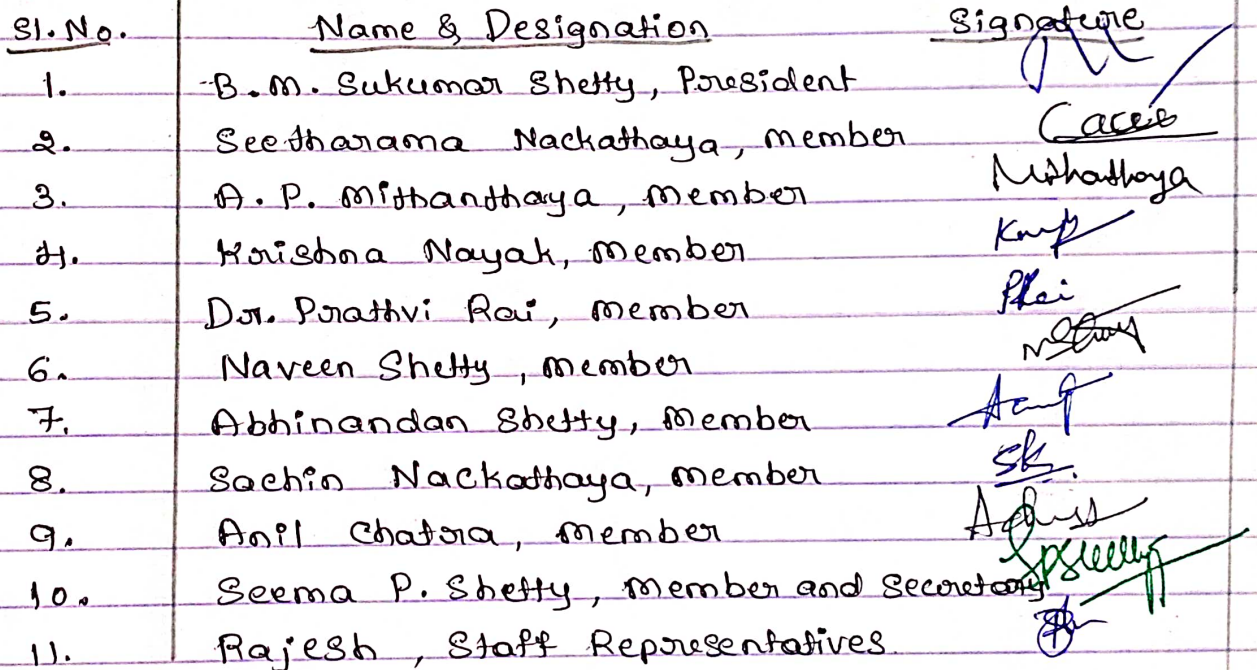 Sl. No. Name & Designation Signature
1. B. M. Sukumar Shetty, President
2. Seetharama Nackathaya, member
3. A. P. Mithanthaya, member Mithathaya
4. Krishna Nayak, member
5. Dr. Prathvi Rai, member PRai
6. Naveen Shetty, member
7. Abhinandan Shetty, Member
8. Sachin Nackathaya, member
9. Anil Chatra, member
10. Seema P. Shetty, member and Secretary
11. Rajesh, Staff Representatives